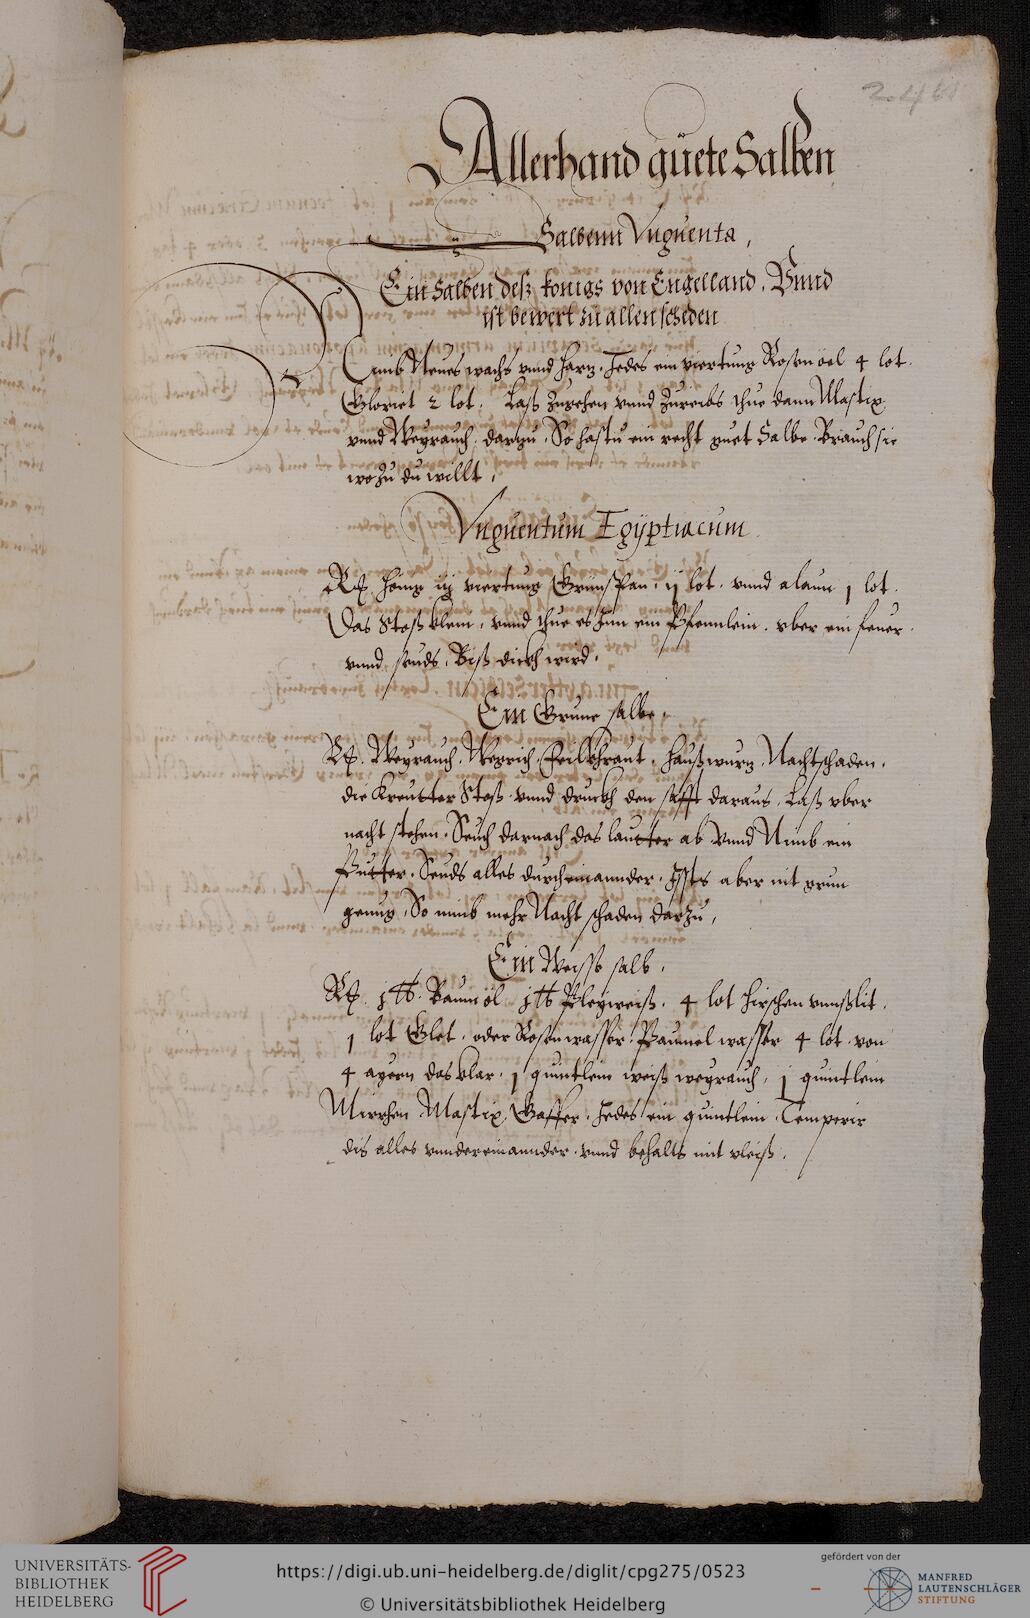 Allerhand güete Salben
Salbenn Vnguenta,
Ein Salben desz konigs von Engelland. Vnnd
ist bewert zu allen scheden
Nimb Neues wachs vnnd harz. Jedes ein viertung Rosen öel 4 lot.
Gloriet 2 lot. Laß zergehen vnnd zureibs thue dann Mastix
vnnd Weyrauch darzu. So hastu ein recht guet Salbe. Brauch sie
wozu du willt,
Vnguentum Egÿptiacum
Rx. honig iij viertung Grünspan. ij lot. vnnd alaun j lot.
Das Stoß klein, vnnd thue es Inn ein Pfennlein. vber ein feuer.
vnnd seuds. Biß dickh wird.
Ein Grune salbe.
Rx. Weyrauch. Wegrich. Feilkhraut. Haußwurz. Nachtschaden.
die kreutter Stoß. vnnd druckh den safft daraus. Laß vber
nacht stehen. Seuch darnach das lautter ab vnnd Nimb ein
Putter. Seuds alles durcheinannder. Ists aber nit grun
genug. So nimb mehr Nacht schaden darzu,
Ein Weisse salb.
Rx. j lb. Baumöl j lb Pleyweiß. 4 lot Hirschen vnnßlit.
1 lot Glet. oder Rosenwasser. wasser 4 lot. von
4 ayern das klar. j quintlein weiß weyrauch. j quintlein
Mirrhen. Mastix. Gaffer. Jedes ein quintlein. Temperir
dis alles vndereinannder. vnnd behalts mit vleiß.
UNIVERSITÄTS-
BIBLIOTHEK
HEIDELBERG
https://digi.ub.uni-heidelberg.de/diglit/cpg275/0523
© Universitätsbibliothek Heidelberg
gefördert von der
MANFRED
LAUTENSCHLÄGER
STIFTUNG